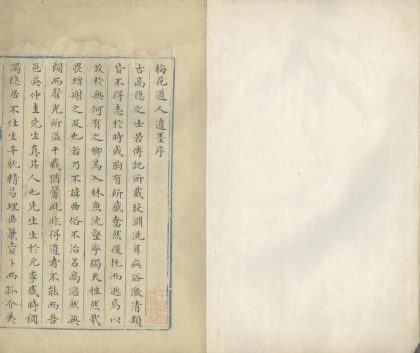 梅花道人遺墨序
古高隱之士若傳記所載投淵洗耳與俗激清類
皆不得志於時或胸有所感奮然後托而逃焉以
放於無何有之鄉鳥入林魚沈壑寧獨天性然哉
畏繒謝之及也若乃不諱曲俗不治名高澹然無
悶而聲光所溢千載猶馨此非得道者不能而吾
邑吳仲圭先生真其人也先生生於元季盛時稠
濁隱居不仕生平耽精易理垂簾賣卜而孤介美